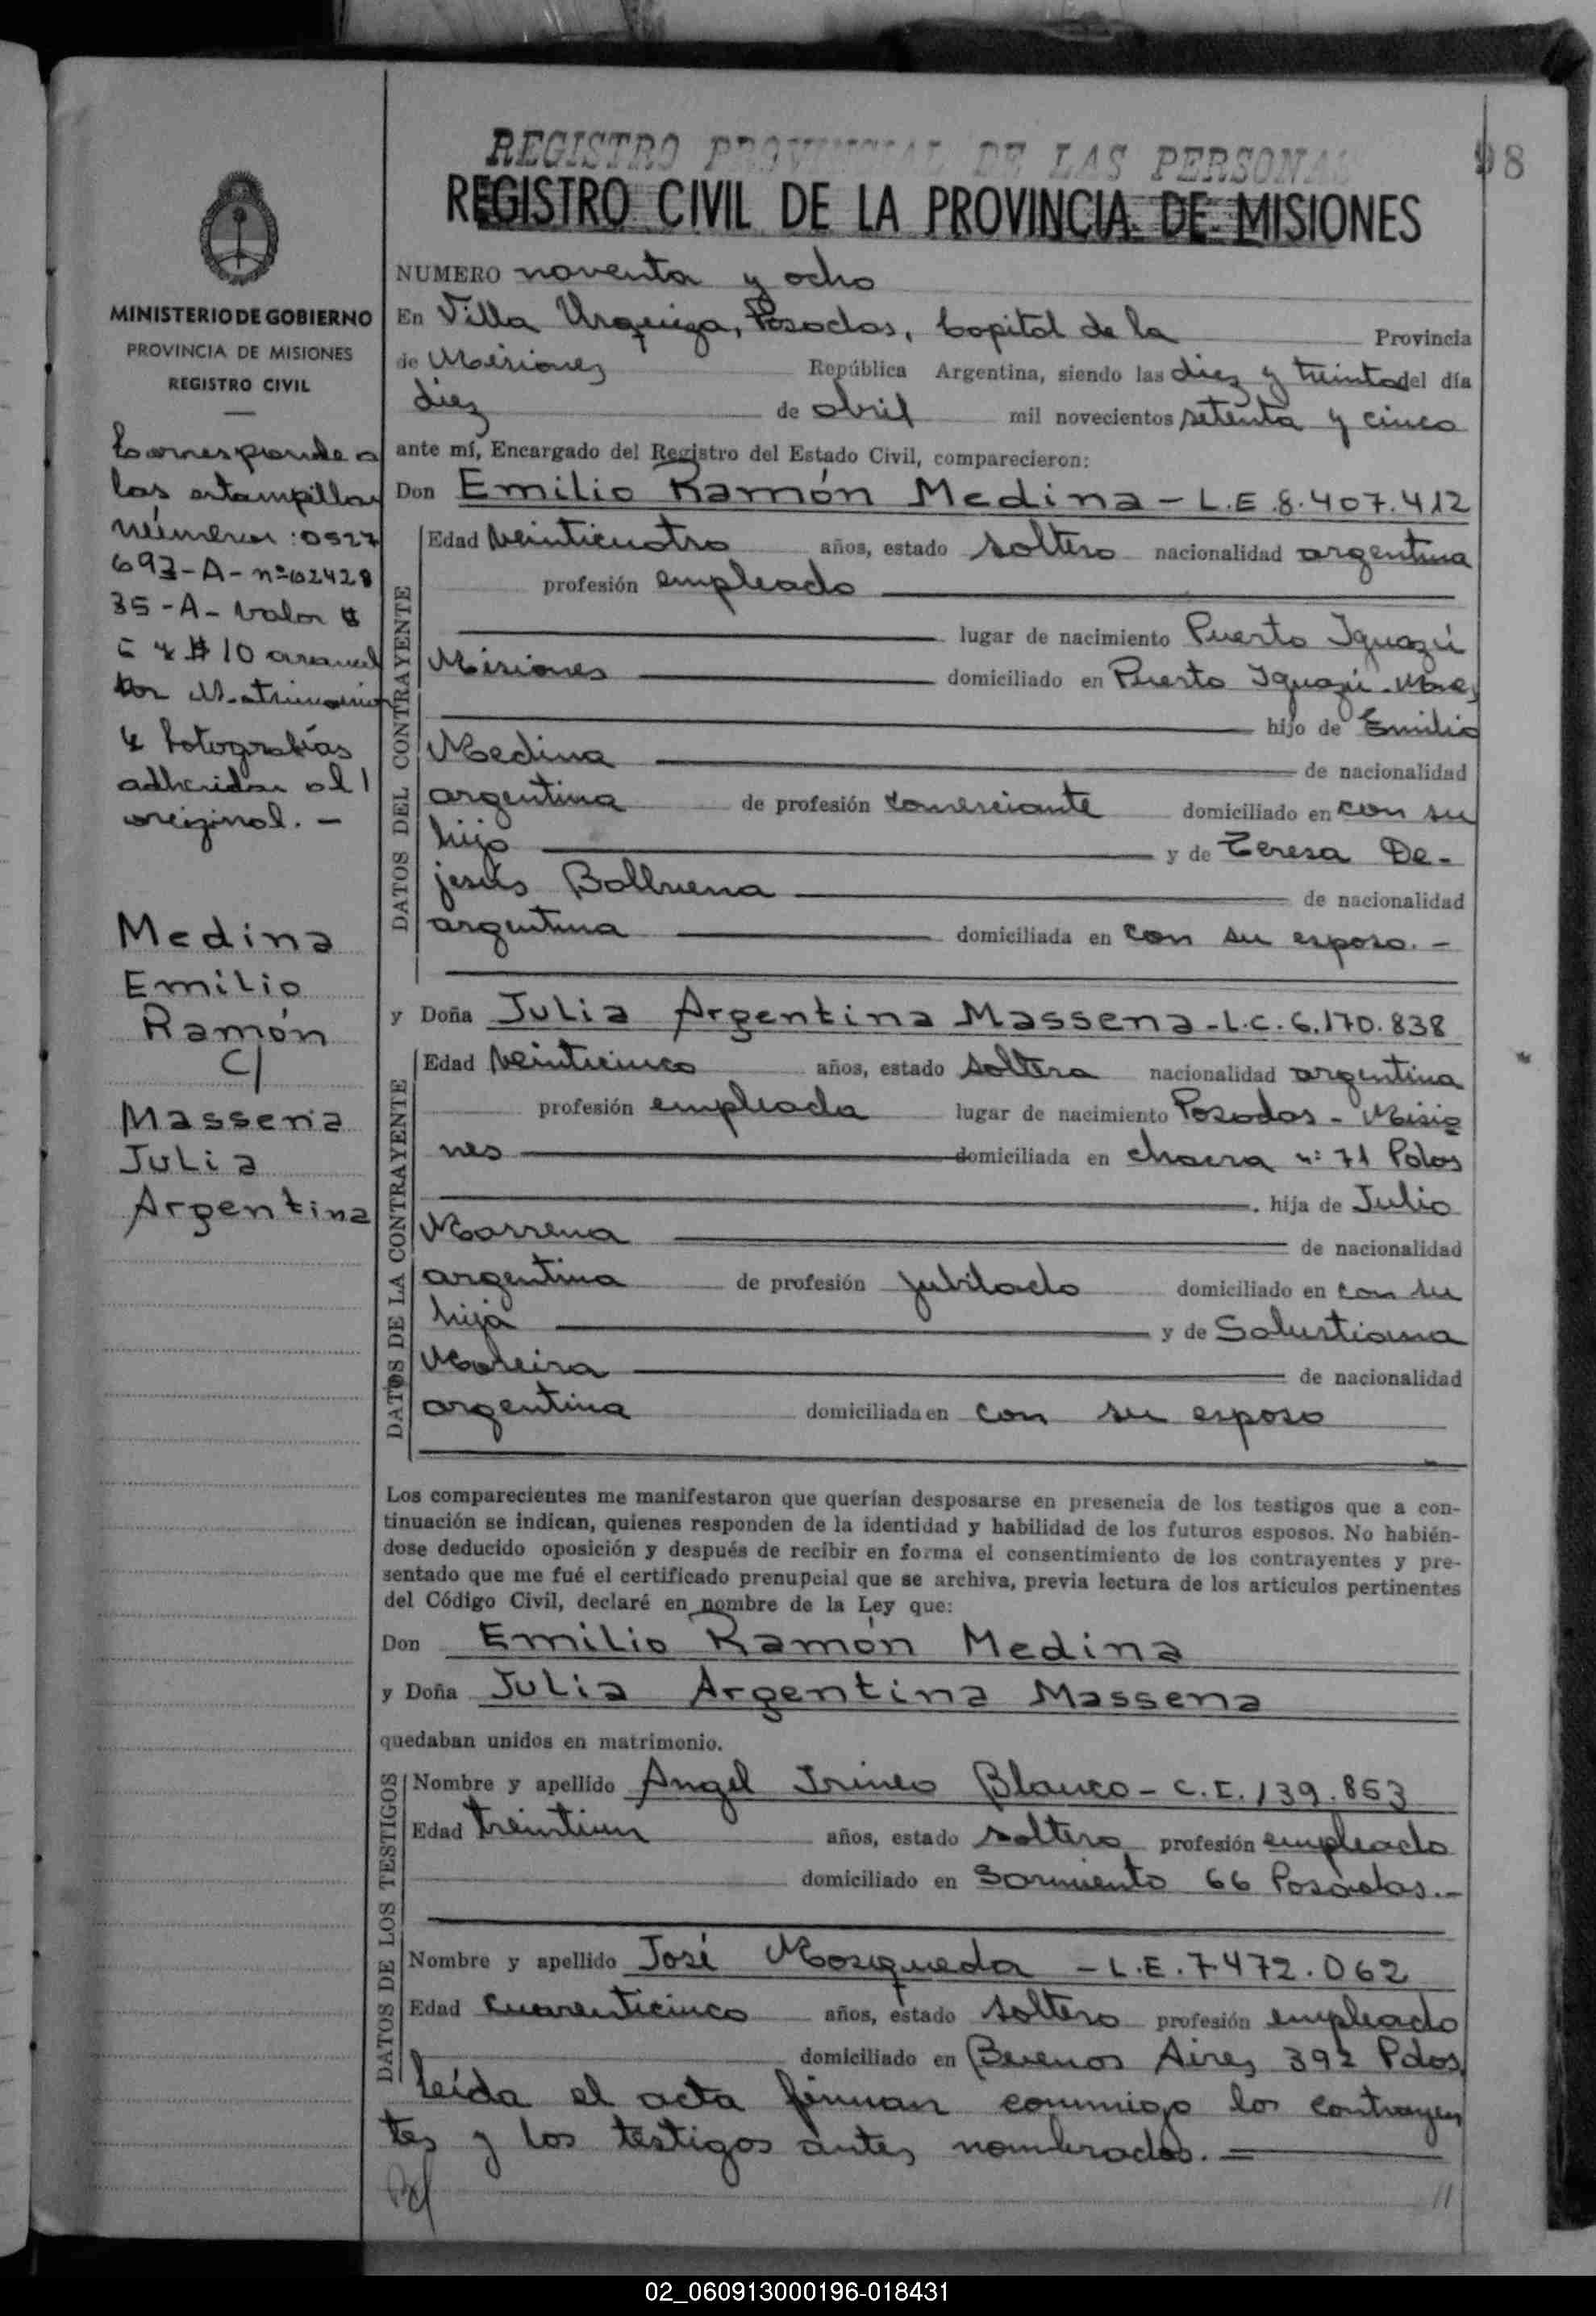 REGISTRO PROVINCIAL DE LAS PERSONAS
98
REGISTRO CIVIL DE LA PROVINCIA DE MISIONES
NUMERO noventa y ocho
En Villa Urquiza, Posadas, Capital de la Provincia
de Misiones República Argentina, siendo las diez y treinta del día
diez de abril mil novecientos setenta y cinco
ante mí, Encargado del Registro del Estado Civil, comparecieron:
Don Emilio Ramón Medina - L.E.8.407.412
DATOS DEL CONTRAYENTE
Edad veinticuatro años, estado soltero nacionalidad argentina
profesión empleado
lugar de nacimiento Puerto Iguazú
Misiones domiciliado en Puerto Iguazú - Mnes
hijo de Emilio
Medina de nacionalidad
argentina de profesión comerciante domiciliado en con su
hijo y de Teresa De-
jesús Balbuena de nacionalidad
argentina domiciliada en con su esposo. -
y Doña Julia Argentina Massena - L.C. 6.170.838
DATOS DE LA CONTRAYENTE
Edad veinticinco años, estado soltera nacionalidad argentina
profesión empleada lugar de nacimiento Posadas - Misio
nes domiciliada en chacra n: 71 Pdas
hija de Julio
Massena de nacionalidad
argentina de profesión jubilado domiciliado en con su
hija y de Salustiana
Moreira de nacionalidad
argentina domiciliada en con su esposo
Los comparecientes me manifestaron que querían desposarse en presencia de los testigos que a con-
tinuación se indican, quienes responden de la identidad y habilidad de los futuros esposos. No habién-
dose deducido oposición y después de recibir en forma el consentimiento de los contrayentes y pre-
sentado que me fué el certificado prenupcial que se archiva, previa lectura de los artículos pertinentes
del Código Civil, declaré en nombre de la Ley que:
Don Emilio Ramón Medina
y Doña Julia Argentina Massena
quedaban unidos en matrimonio.
DATOS DE LOS TESTIGOS
Nombre y apellido Angel Irineo Blanco - C.I. 139.853
Edad treintiun años, estado soltero profesión empleado
domiciliado en Sarmiento 66 Posadas.-
Nombre y apellido José Mosqueda - L.E.7.472.062
Edad cuarenticinco años, estado soltero profesión empleado
domiciliado en Buenos Aires 392 Pdas.
leída el acta firman conmigo los contrayen
tes y los testigos antes nombrados. =
//
MINISTERIO DE GOBIERNO
PROVINCIA DE MISIONES
REGISTRO CIVIL
Corresponde a
las estampillas
números : 0527
693-A- nº 02428
35-A- Valor $
5 y $ 10 arancel
por Matrimonio
4 fotografías
adheridas al
original. -
Medina
Emilio
Ramón
C/
Massena
Julia
Argentina
02_060913000196-018431